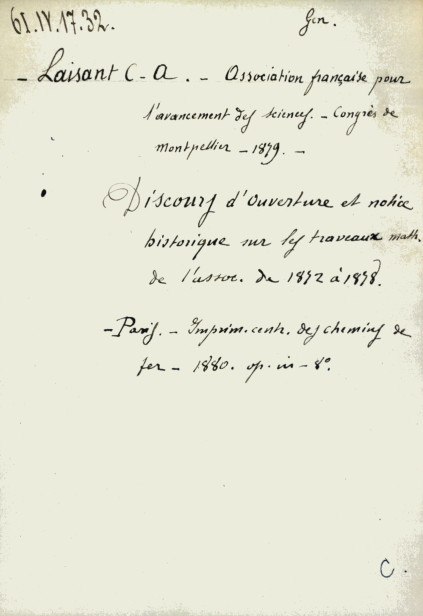 61.IV.17.32.
Gen.
- Laisant C-A. - Association française pour
l'avancement des sciences. - Congrès de
Montpellier - 1879. -
Discours d'Ouverture et notice
historique sur les traveaux math.
de l'assoc. de 1872 à 1878.
- Paris. - Imprim. centr. des chemins de
fer - 1880. op. in - 8°.
C.